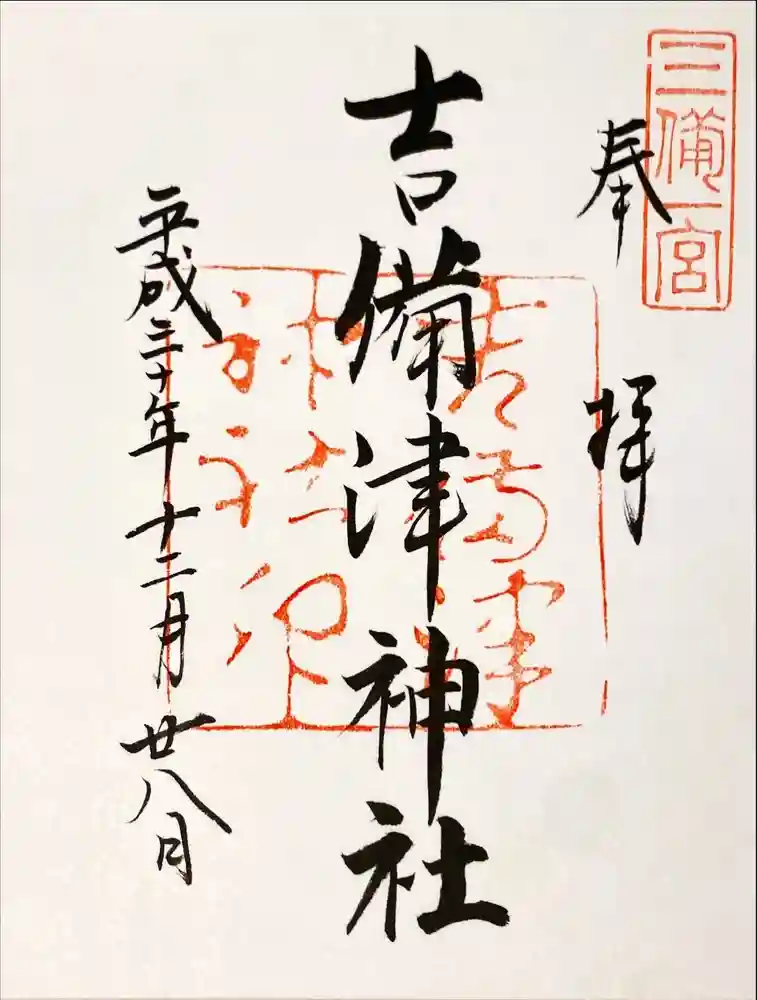 三備一宮
奉拝
吉備津神社
吉備津
神社印
平成三十年十二月廿八日